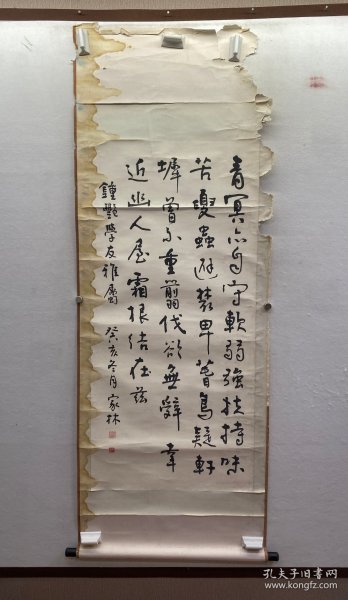 青冥亦自守軟弱強扶持味
苦夏蟲避叢卑春鳥疑軒
墀曾不重翦伐欲無辭幸
近幽人屋霜根結在茲
學友雅屬 癸亥冬月 家林
孔夫子旧书网
www.kongfz.com